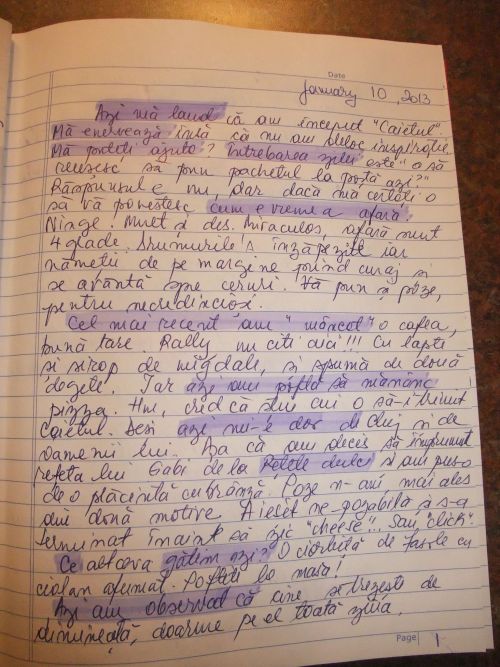 Date
January 10, 2013
Azi mă laud că am început "Caietul".
Mă enervează însă că nu am deloc inspirație.
Mă puteți ajuta? Întrebarea zilei este "o să
reușesc să pun pachetul la poștă azi?"
Răspunsul e nu, dar dacă mă certați o
să vă povestesc cum e vremea afară.
Ninge. Mult și des. Miraculos, afară sunt
4 grade. Drumurile's înzăpezite iar
nămeții de pe margine prind curaj și
se avântă spre ceruri. Vă pun și poze,
pentru necredincioși.
Cel mai recent am "mâncat" o cafea,
bună tare. Rally nu citi aia!!! Cu lapte
și sirop de migdale, și spumă de două
degete. Iar azi am poftă să mănânc
pizza. Hm, cred că știu cui o să-i trimit
Caietul. Deși azi mi-e dor de Cluj și de
oamenii lui. Așa că am decis să împrumut
rețeta lui Gabi de la Rețete dulci și am pus-o
de o plăcintă cu brânză. Poze n-am mai ales
din două motive.
terminat înainte să zic "cheese"... Sau "click".
Ce altceva gătim azi? O ciorbiță de fasole cu
ciolan afumat. Poftiți la masă!
Azi am observat că cine se trezește de
dimineață, doarme pe el toată ziua.
Page 1